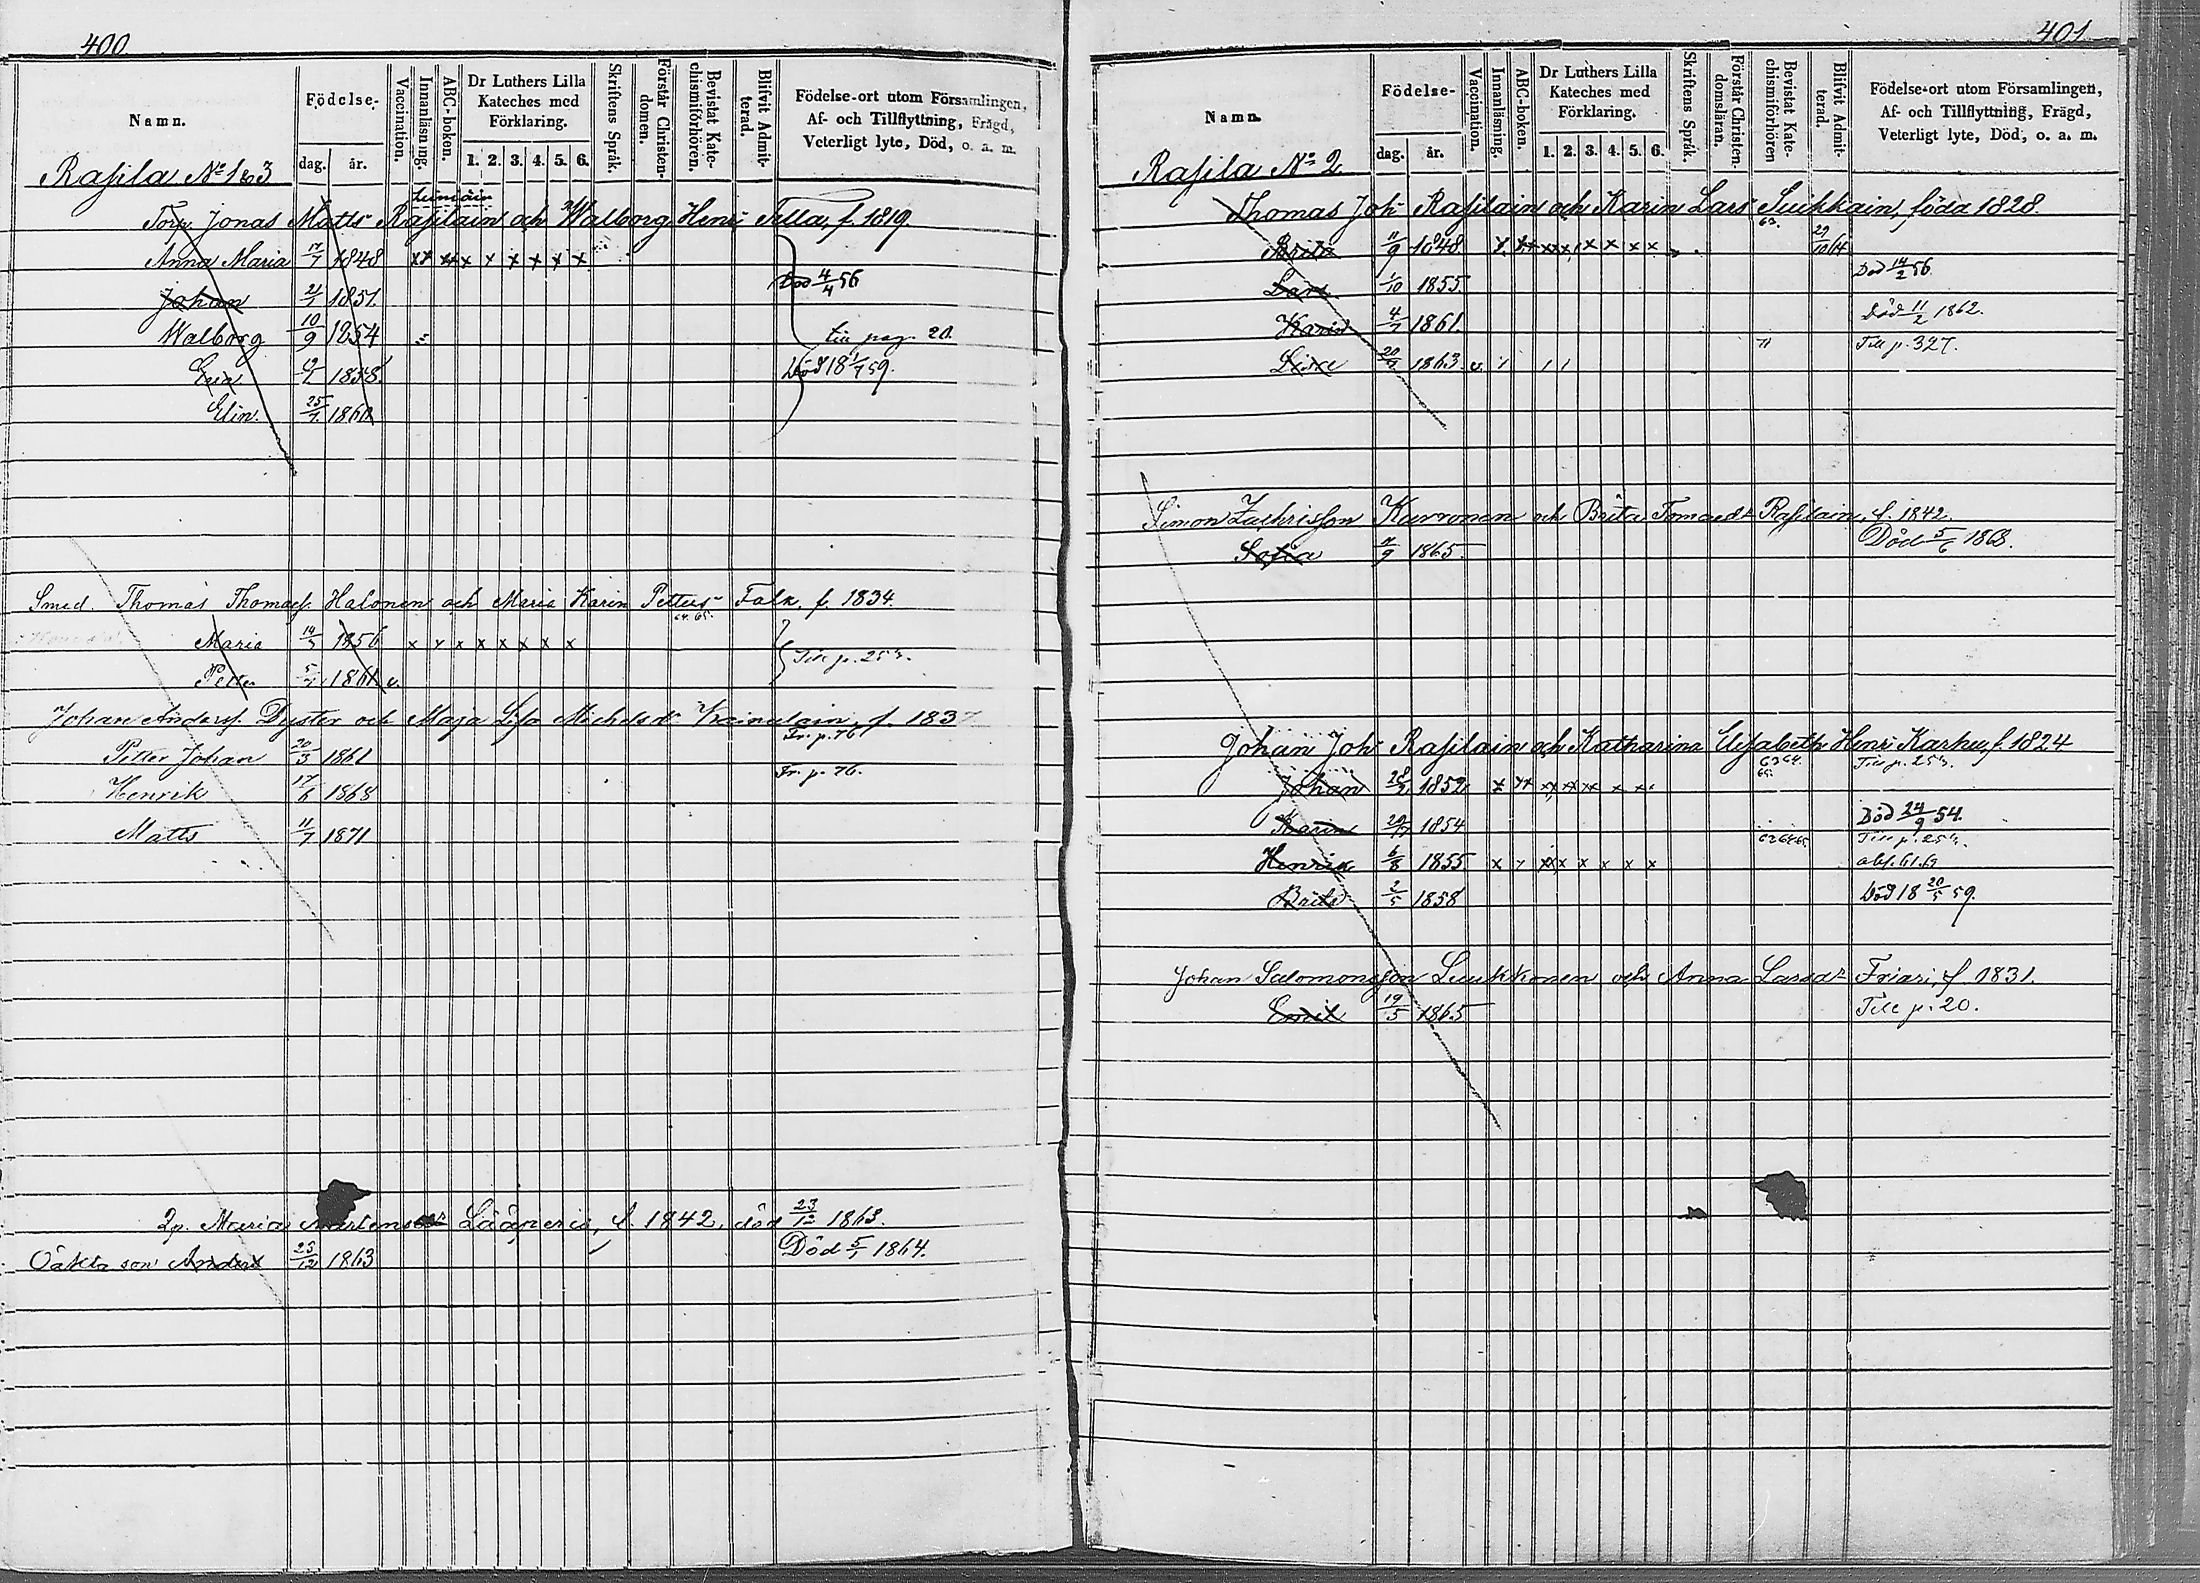 400
Namn.
Födelse-
dag. år.
Vaccination.
Innanläsning.
ABC-boken.
Dr Luthers Lilla Kateches med Förklaring.
1. 2. 3. 4. 5. 6.
Skriftens Språk.
Förstår Christen-domen.
Bevistat Kate-chismiförhören.
Blifvit Admit-terad.
Födelse-ort utom Församlingen, Af- och Tillflyttning, Frägd, Veterligt lyte, Död, o. a. m.
Rasila No 1 & 3
Torp. Jonas Matts Rasilain och Walborg Henr Tilla, f. 1819.
Anna Maria 17/7 1848 x x x x x x
Johan 21/1 1851. Död 4/4 56
Walborg 10/9 1854 till pag. 20.
1858. Död 18 1/7 59.
Elin. 25/7 1860
Smed. Thomas Thomasf. Halonen och Maria Karin Petters Falk, f. 1834.
64. 65.
Maria 14/3 1856 x x x x x x x x
Petter 1861 v. Till p.
Johan Andersf. Dyster och Maja Lisa Michelsdr Kainulain, f. 1837
Fr. p. 76
Petter Johan 20/3 1861
Henrik 17/6 1868 Fr. p. 76.
Matts 11/7 1871
Maria Mårtensdr Lääperi, f. 1842, död 23/12 1863.
Oäkta son Anders 23/12 1863 Död 5/1 1864.
401.
Namn.
Födelse-
dag. år.
Vaccination.
Innanläsning.
ABC-boken.
Dr Luthers Lilla Kateches med Förklaring.
1. 2. 3. 4. 5. 6.
Skriftens Språk.
Förstår Christen-domsläran.
Bevistat Kate-chismiförhören
Blifvit Admit-terad.
Födelse-ort utom Församlingen, Af- och Tillflyttning, Frägd, Veterligt lyte, Död, o. a. m.
Rasila No 2
Thomas Joh Rasilain och Karin Lars Suikkain, föda 1828.
Brita 11/9 1848. 29/10 64
Lars 1/10 1855. Död 14/2 56
Karin 4/7 1861. Död 11/2 1862.
1863. v. Till p. 327.
Simon Zachrisson Kurvonen och Brita Tomasdr Rasilain, f. 1842.
Sofia 11/9 1865. Död 5/6 1868.
Johan Joh Rasilain och Katharina Elisabeth Henr Karhu, f. 1824
Johan 1852
Karin 1854 Död 24/9 54.
Henrik 6/8 1855
Brita 2/5 1858 Död 18 20/5 59.
Johan Salomonsson Luukkonen och Anna Larsdr Friari, f. 1831.
Emil 19/5 1865 Till p. 20.